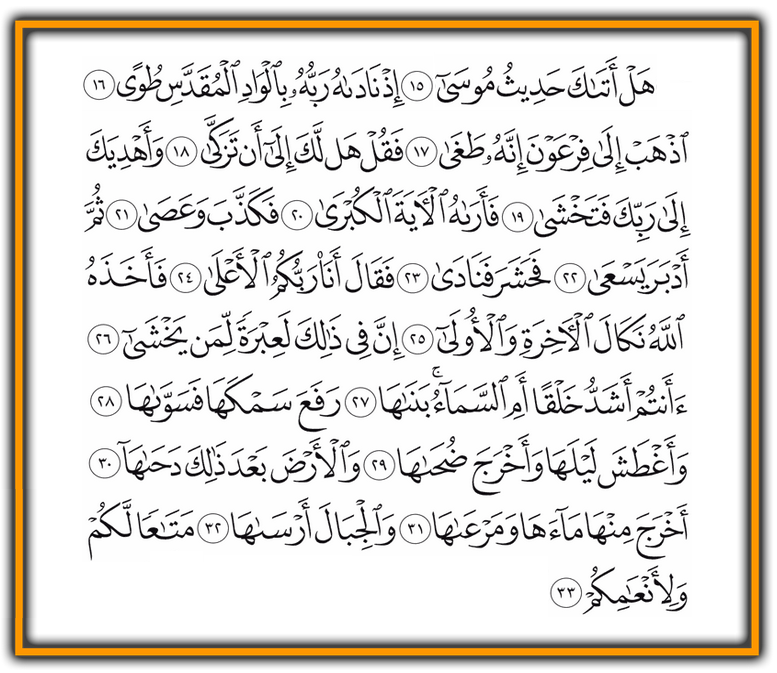 هَلْ أَتَىٰكَ حَدِيثُ مُوسَىٰٓ ١٥ إِذْ نَادَىٰهُ رَبُّهُۥ بِٱلْوَادِ ٱلْمُقَدَّسِ طُوًى ١٦
ٱذْهَبْ إِلَىٰ فِرْعَوْنَ إِنَّهُۥ طَغَىٰ ١٧ فَقُلْ هَل لَّكَ إِلَىٰٓ أَن تَزَكَّىٰ ١٨ وَأَهْدِيَكَ
إِلَىٰ رَبِّكَ فَتَخْشَىٰ ١٩ فَأَرَىٰهُ ٱلْأَيَةَ ٱلْكُبْرَىٰ ٢٠ فَكَذَّبَ وَعَصَىٰ ٢١ ثُمَّ
أَدْبَرَ يَسْعَىٰ ٢٢ فَحَشَرَ فَنَادَىٰ ٢٣ فَقَالَ أَنَا۠ رَبُّكُمُ ٱلْأَعْلَىٰ ٢٤ فَأَخَذَهُ
ٱللَّهُ نَكَالَ ٱلْأَخِرَةِ وَٱلْأُولَىٰٓ ٢٥ إِنَّ فِى ذَٰلِكَ لَعِبْرَةً لِّمَن يَخْشَىٰٓ ٢٦
ءَأَنتُمْ أَشَدُّ خَلْقًا أَمِ ٱلسَّمَآءُ ۚ بَنَىٰهَا ٢٧ رَفَعَ سَمْكَهَا فَسَوَّىٰهَا ٢٨
وَأَغْطَشَ لَيْلَهَا وَأَخْرَجَ ضُحَىٰهَا ٢٩ وَٱلْأَرْضَ بَعْدَ ذَٰلِكَ دَحَىٰهَآ ٣٠
أَخْرَجَ مِنْهَا مَآءَهَا وَمَرْعَىٰهَا ٣١ وَٱلْجِبَالَ أَرْسَىٰهَا ٣٢ مَتَٰعًا لَّكُمْ
وَلِأَنْعَٰمِكُمْ ٣٣